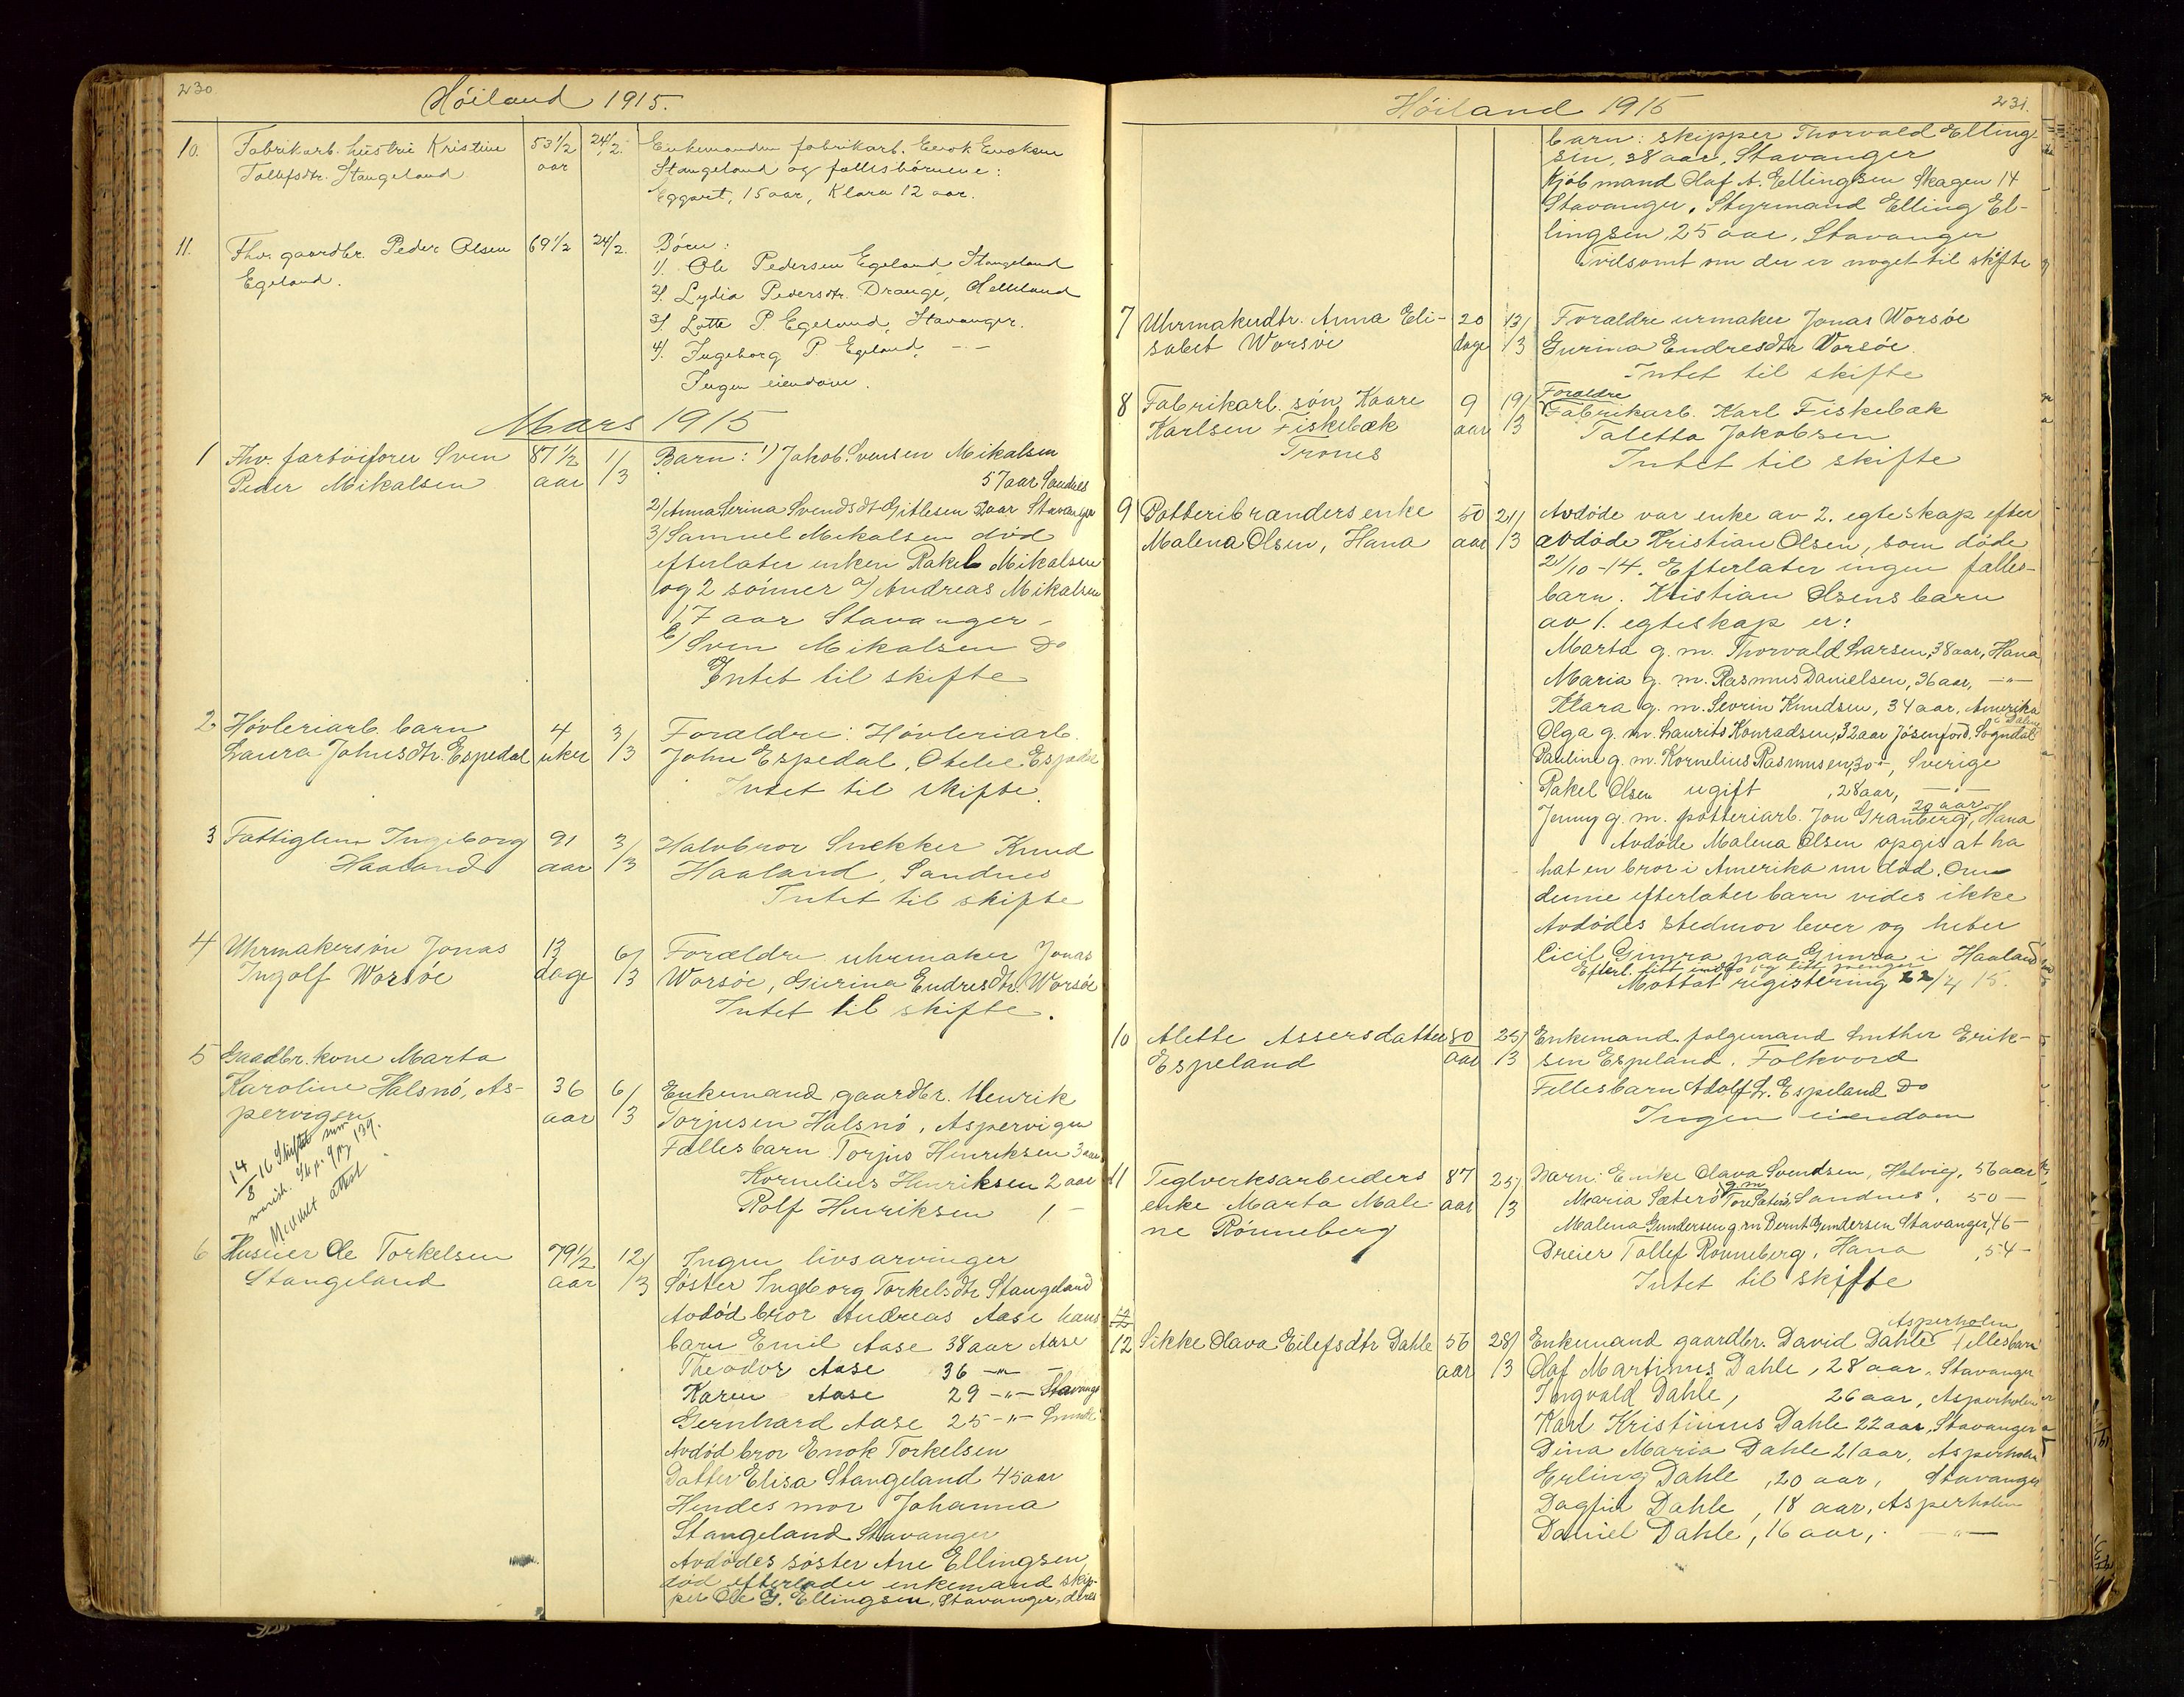 230
Høiland 1915.
10. Fabrikarb. hustru Kristine 53½ 24/2. Enkemanden fabrikarb. Enok Enoksen
Tollefsdtr. Stangeland aar Stangeland og fællesbørnene:
Eggart, 15 aar, Klara 12 aar.
11. Fhv. gaardbr. Peder Olsen 69½ 24/2. Børn:
Egeland. 1/. Ole Pedersen Egeland, Stangeland
2/. Lydia Pedersdtr. Drange, Helleland
3/. Lotte P. Egeland, Stavanger.
4/. Ingeborg P. Egeland, - " -
Ingen eiendom.
Mars 1915
1 Fhv. fartøifører Sven 87½ 1/3 Barn: 1) Jakob Svensen Mikalsen
Peder Mikalsen aar 57 aar Sandnes
2/ Anna Serina Svendsdtr Gitlesen aar Stavanger
3/ Samuel Mikalsen død
efterlater enken Rakel Mikalsen
og 2 sønner a/ Andreas Mikalsen
17 aar Stavanger -
b/ Sven Mikalsen Do
Intet til skifte
2 Høvleriarb. barn 4 3/3 Forældre: Høvleriarb.
Laura Johnsdtr. Espedal uker John Espedal, Otelie Espedal
Intet til skifte.
3 Fattiglem Ingeborg 91 3/3 Halvbror Snekker Knud
Haaland aar Haaland, Sandnes
Intet til skifte
4 Uhrmakersøn Jonas 13 6/3 Forældre uhrmaker Jonas
Ingolf Worsøe dage Worsøe, Gurina Endresdtr. Worsøe
Intet til skifte.
5 Gaardbr. kone Marta
Karoline Halsnø, As- 36 6/3 Enkemand gaardbr. Henrik
pervigen aar Torjusen Halsnø, Aspervigen
14/8 16 Skiftet
139.
attest
Fællesbarn Torjus Henriksen 3 aar
Kornelius Henriksen 2 aar
Rolf Henriksen 1 -
6 Husmer Ole Torkelsen 79½ 12/3 Ingen livsarvinger
Stangeland aar Søster Ingeborg Torkelsdtr Stangeland
Avdød bror Andreas Aase hans
barn Emil Aase 38 aar Aase
Theodor Aase 36 - " -
Karen Aase 29 - " - Stavanger
Gernhard Aase 25 - " -
Avdød bror Enok Torkelsen
Datter Elisa Stangeland 45 aar
Hendes mor Johanna
Stangeland Stavanger
Avdødes søster Ane Ellingsen
død efterlader enkemand skip-
per Ole G. Ellingsen, Stavanger, deres
Høiland 1915
231.
barn: skipper Thorvald Elling
sen, 38 aar, Stavanger
Kjøbmand Olaf A. Ellingsen Skagen 14
Stavanger, Styrmand Elling El-
lingsen, 25 aar, Stavanger
Tvilsomt om der er noget til skifte
7 Uhrmakerdtr. Anna Eli- 20 13/3 Forældre urmaker Jonas Worsøe
sabet Worsøe dage Gurina Endresdtr Worsøe
Intet til skifte
8 Fabrikarb. søn Kaare 9 19/3 Forældre
Karlsen Fiskebæk aar Fabrikarb. Karl Fiskebæk
Trones Taletta Jakobsen
Intet til skifte
9 Potteribrænders enke 50 21/3 Avdøde var enke av 2. egteskap efter
Malena Olsen, Hana aar avdøde Kristian Olsen, som døde
21/10-14. Efterlater ingen fælles-
barn. Kristian Olsens barn
av 1. egteskap er:
Marta g. m. Thorvald Larsen, 38 aar, Hana
Maria g. m. Rasmus Danielsen, 36 aar, - " -
Klara g. m. Sevrin Knudsen, 34 aar, Amerika
Olga g. m. Laurits Konradsen, 32 aar Jøsenfjord. Sogndal i Dalene
Pauline g. m. Kornelius Rasmusen, 30 -"-, Sverige
Rakel Olsen ugift, 28 aar, - -
Jenny g. m. potteriarb. Jon Granberg, 20 aar, Hana
Avdøde Malena Olsen opgis at ha
hat en bror i Amerika nu død. Om
denne efterlater barn vides ikke
Avdødes stedmor lever og heter
Cicil Gimra paa Gimra i Haaland
Efterl. litt indbo og litt penger
Mottat registering 22/4 15.
10 Alette Assersdatter 80 25/3 Enkemand folgemand Luther Erik-
Espeland aar sen Espeland, Folkvord
Fellesbarn Adolf L. Espeland Do
Ingen eiendom
11 Teglverksarbeiders 87 25/3 Barn: Enke Olava Svendsen, Helvig, 56 aar
enke Marta Male- aar Maria Sæterø g.m Tore Sæterø, Sandnes, 50 -
ne Rønneberg Malena Gundersen g.m Bernt Gundersen Stavanger, 46 -
Dreier Tollef Rønneberg, Hana, 54 -
Intet til skifte
12
12 Sikke Olava Eilefsdtr Dahle 56 28/3 Enkemand gaardbr. David Dahle Asperholm fellesbarn
aar Olaf Martinus Dahle, 28 aar, Stavanger
Ingvald Dahle, 26 aar, Asperholm
Karl Kristinius Dahle 22 aar, Stavanger
Dina Maria Dahle 21 aar, Asperholm
Erling Dahle, 20 aar, Stavanger
Dagfin Dahle, 18 aar, Asperholm
Daniel Dahle, 16 aar, - " -